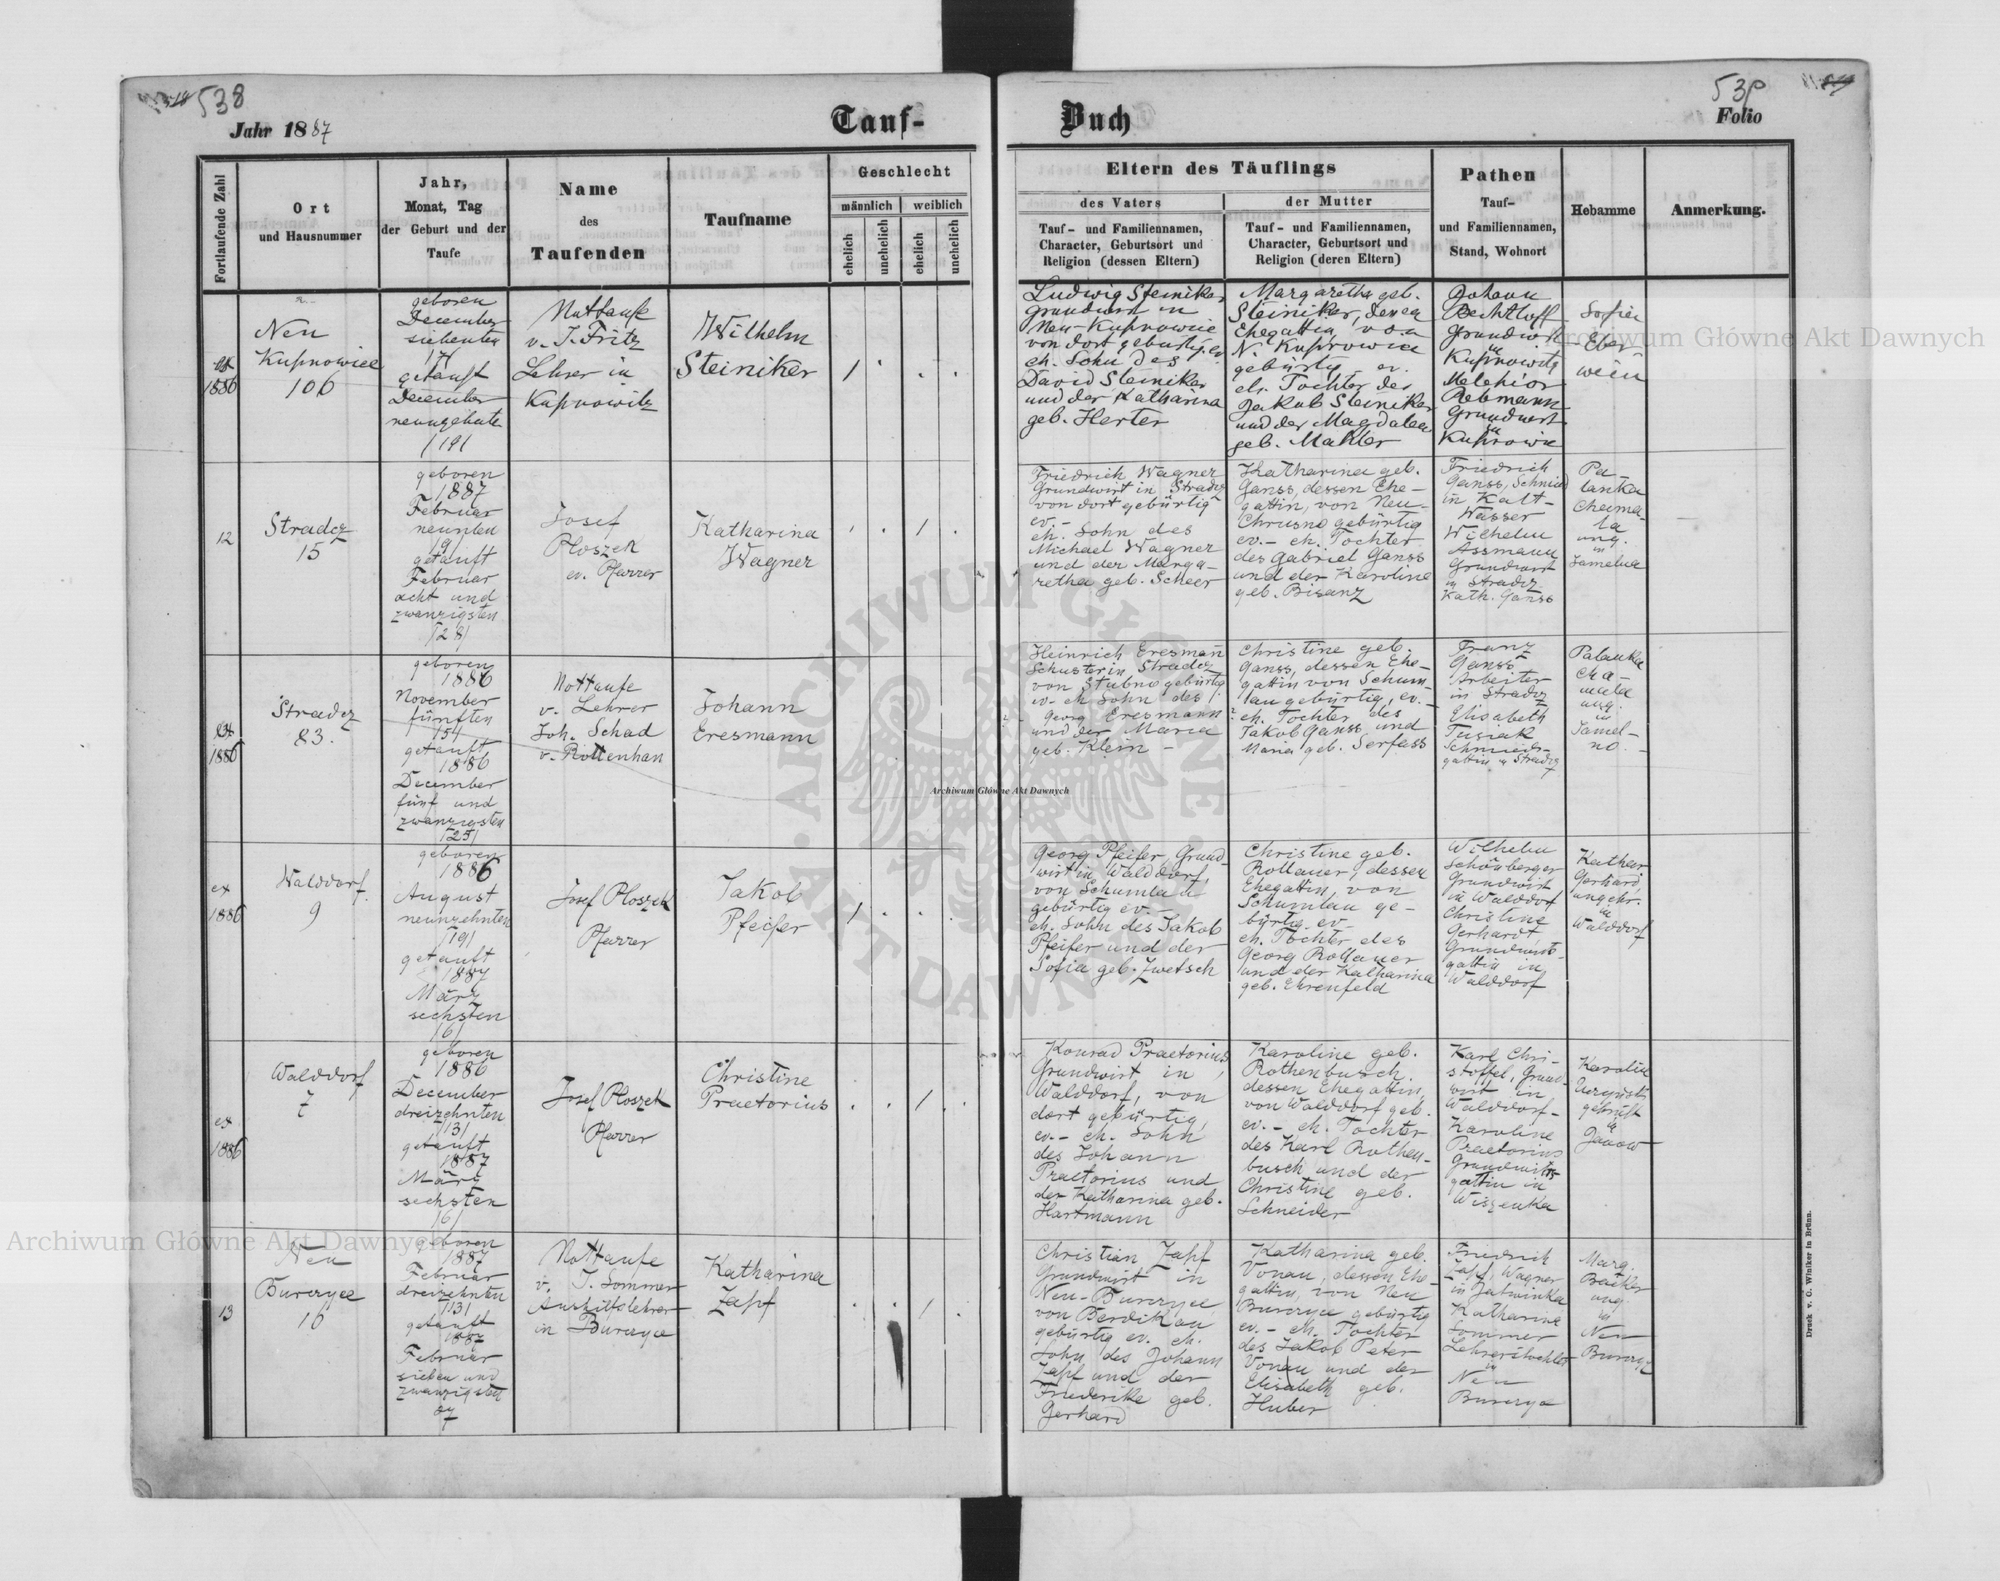 538
Jahr 1887
Tauf-
Buch
539
Folio
Fortlaufende Zahl
Ort
und Hausnummer
Jahr,
Monat, Tag
der Geburt und der
Taufe
Name
des
Taufenden
Taufname
Geschlecht
männlich
weiblich
ehelich
unehelich
ehelich
unehelich
Eltern des Täuflings
des Vaters
Tauf- und Familiennamen,
Character, Geburtsort und
Religion (dessen Eltern)
der Mutter
Tauf- und Familiennamen,
Character, Geburtsort und
Religion (deren Eltern)
Pathen
Tauf-
und Familiennamen,
Stand, Wohnort
Hebamme
Anmerkung.
ex
1886
Neu
Kupnowice
106
geboren
December
siebenten
/7/
getauft
December
neunzehnten
/19/
Nottaufe
v. J. Fritz
Lehrer in
Kupnowitz
Wilhelm
Steiniker
1
Ludwig Steiniker
Grundwirt in
Neu-Kupnowice
von dort gebürtig, ev.
eh. Sohn des
David Steiniker
und der Katharina
geb. Herter
Margaretha geb.
Steiniker, deren
Ehegattin, von
N. Kupnowice
gebürtig ev.
eh. Tochter des
Jakob Steiniker
und der Magdalena
geb. Mahler
Johann
Bechtloff
Grundwirt
in
Kupnowitz
Melchior
Rebmann
Grundwirt
in
Kupnowice
Sofia
Eber-
wein
12
Stradcz
15
geboren
1887
Februar
neunten
/9/
getauft
Februar
acht und
zwanzigsten
/28/
Josef
Ploszek
ev. Pfarrer
Katharina
Wagner
1
Friedrich Wagner
Grundwirt in Stradcz
von dort gebürtig
ev. -
eh. Sohn des
Michael Wagner
und der Marga-
retha geb. Scheer
Katharina geb.
Ganss, dessen Ehe-
gattin, von Neu-
Chrusno gebürtig
ev. - eh. Tochter
des Gabriel Ganss
und der Karoline
geb. Bisanz
Friedrich
Ganss, Schmied
in Kalt-
Wasser
Wilhelm
Assmann
Grundwirt
in Stradcz
Kath. Ganss
Pa-
lanka
ung.
in
ex
1886
Stradcz
83.
geboren
1886
November
fünften
/5/
getauft
1886
December
fünf und
zwanzigsten
/25/
Nottaufe
v. Lehrer
Joh. Schad
v. Rottenhan
Johann
Eresmann
Heinrich Eresmann
Schuster in Stradcz
von Stubno gebürtig
ev. eh. Sohn des
Georg Eresmann
und der Maria
geb. Klein -
Christine geb.
Ganss, dessen Ehe-
gattin von Schum-
lau gebürtig, ev. -
eh. Tochter des
Jakob Ganss und
Maria geb. Serfass
Franz
Ganss
Arbeiter
in Stradcz
Elisabeth
Tusiak
Schmieds-
gattin in Stradcz
Palanka
ung.
in
Jamel-
no. -
ex
1886
Walddorf
9
geboren
1886
August
neunzehnten
/19/
getauft
1887
März
sechsten
/6/
Josef Ploszek
Pfarrer
Jakob
Pfeifer
1
Georg Pfeifer, Grund-
wirt in Walddorf,
von Schumlau
gebürtig ev. -
eh. Sohn des Jakob
Pfeifer und der
Sofia geb. Zwetsch
Christine geb.
Rollauer, dessen
Ehegattin, von
Schumlau ge-
bürtig, ev. -
eh. Tochter des
Georg Rollauer
und der Katharina
geb. Ehrenfeld
Wilhelm
Schönberger
Grundwirt
in Walddorf
Christine
Gerhardt,
Grundwirts-
gattin in
Walddorf
Kathar.
Gerhard,
ungepr.
in
Walddorf
ex
1886
Walddorf
7
geboren
1886
December
dreizehnten
/13/
getauft
1887
März
sechsten
/6/
Josef Ploszek
Pfarrer
Christine
Praetorius
1
Konrad Praetorius,
Grundwirt in
Walddorf, von
dort gebürtig,
ev. - eh. Sohn
des Johann
Praetorius und
der Katharina geb.
Hartmann
Karoline geb.
Rothenbusch,
dessen Ehegattin,
von Walddorf geb.
ev. - eh. Tochter
des Karl Rothen-
busch und der
Christine geb.
Schneider
Karl Chri-
stoffel, Grund-
wirt in
Walddorf -
Karoline
Praetorius
Grundwirts-
gattin in
Wiszenka
Karoline
geprüft
in
Janow
13
Neu
Burczyce
16
geboren
1887
Februar
dreizehnten
/13/
getauft
1887
Februar
sieben und
zwanzigsten
27
Nottaufe
v. J. Sommer
Aushilfslehrer
in Burczyce
Katharina
Zapf
1
Christian Zapf
Grundwirt in
Neu-Burczyce
von Berdikau
gebürtig ev. eh.
Sohn des Johann
Zapf und der
Friederike geb.
Gerhard
Katharina geb.
Vonau, dessen Ehe-
gattin, von Neu
Burczyce gebürtig
ev. - eh. Tochter
des Jakob Peter
Vonau und der
Elisabeth geb.
Huber
Friedrich
Zapf, Wagner
in Jatwinka
Katharina
Sommer
Lehrerstochter
in
Neu
Burczyce
Marg.
Bachler
ung.
in
Neu
Burczyce
Druck v. G. Winiker in Brünn.
Archiwum Główne Akt Dawnych
Archiwum Główne Akt Dawnych
Archiwum Główne Akt Dawnych
ARCHIWUM GŁÓWNE AKT DAWNYCH